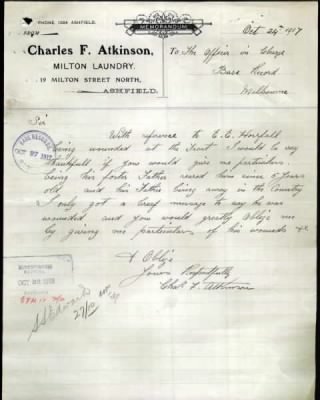 PHONE 1204 ASHFIELD.
MEMORANDUM
FROM
Charles F. Atkinson,
MILTON LAUNDRY.
19 MILTON STREET NORTH,
ASHFIELD.
Oct 24th 1917
To The Officer in Charge
Base Record
Melbourne
Sir
With reference to E. E. Horsfall
being wounded at the Front I would be very
thankfull if you would give me particulars.
being his foster Father reared him since 5 years
old, and his Father being away in the Country
I only got a breif message to say he was
wounded, and you would greatly Oblige me
by giving me particulars of his wounds &c
& Oblige
Yours Respectfully
Chas F. Atkinson
BASE RECORDS
OCT 27 1917
OCT 29
27/10